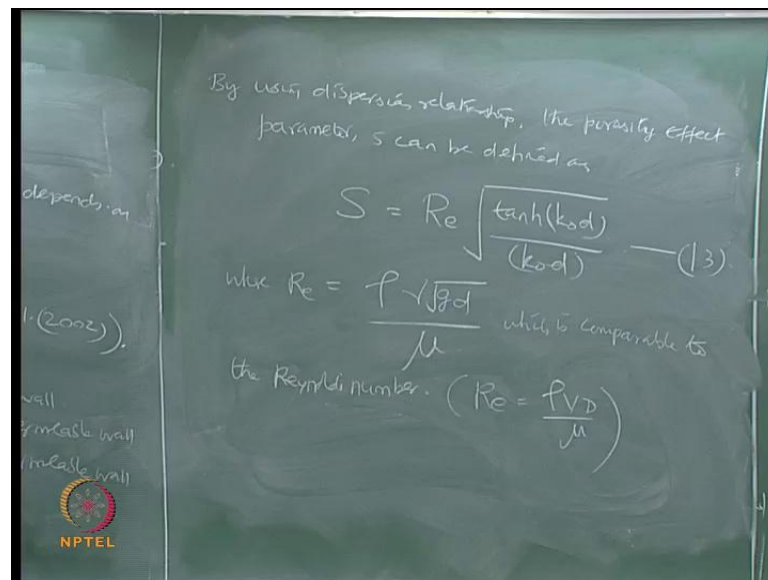 depends on
l. (2002)).
wall
ermeable wall
rmeable wall
By using dispersion relationship. The porosity effect
parameter, s can be defined as
S = Re √(tanh(k₀d)/(k₀d)) —(13).
where Re = ρ√gd/μ which is comparable to
the Reynolds number. (Re = ρVD/μ)
NPTEL